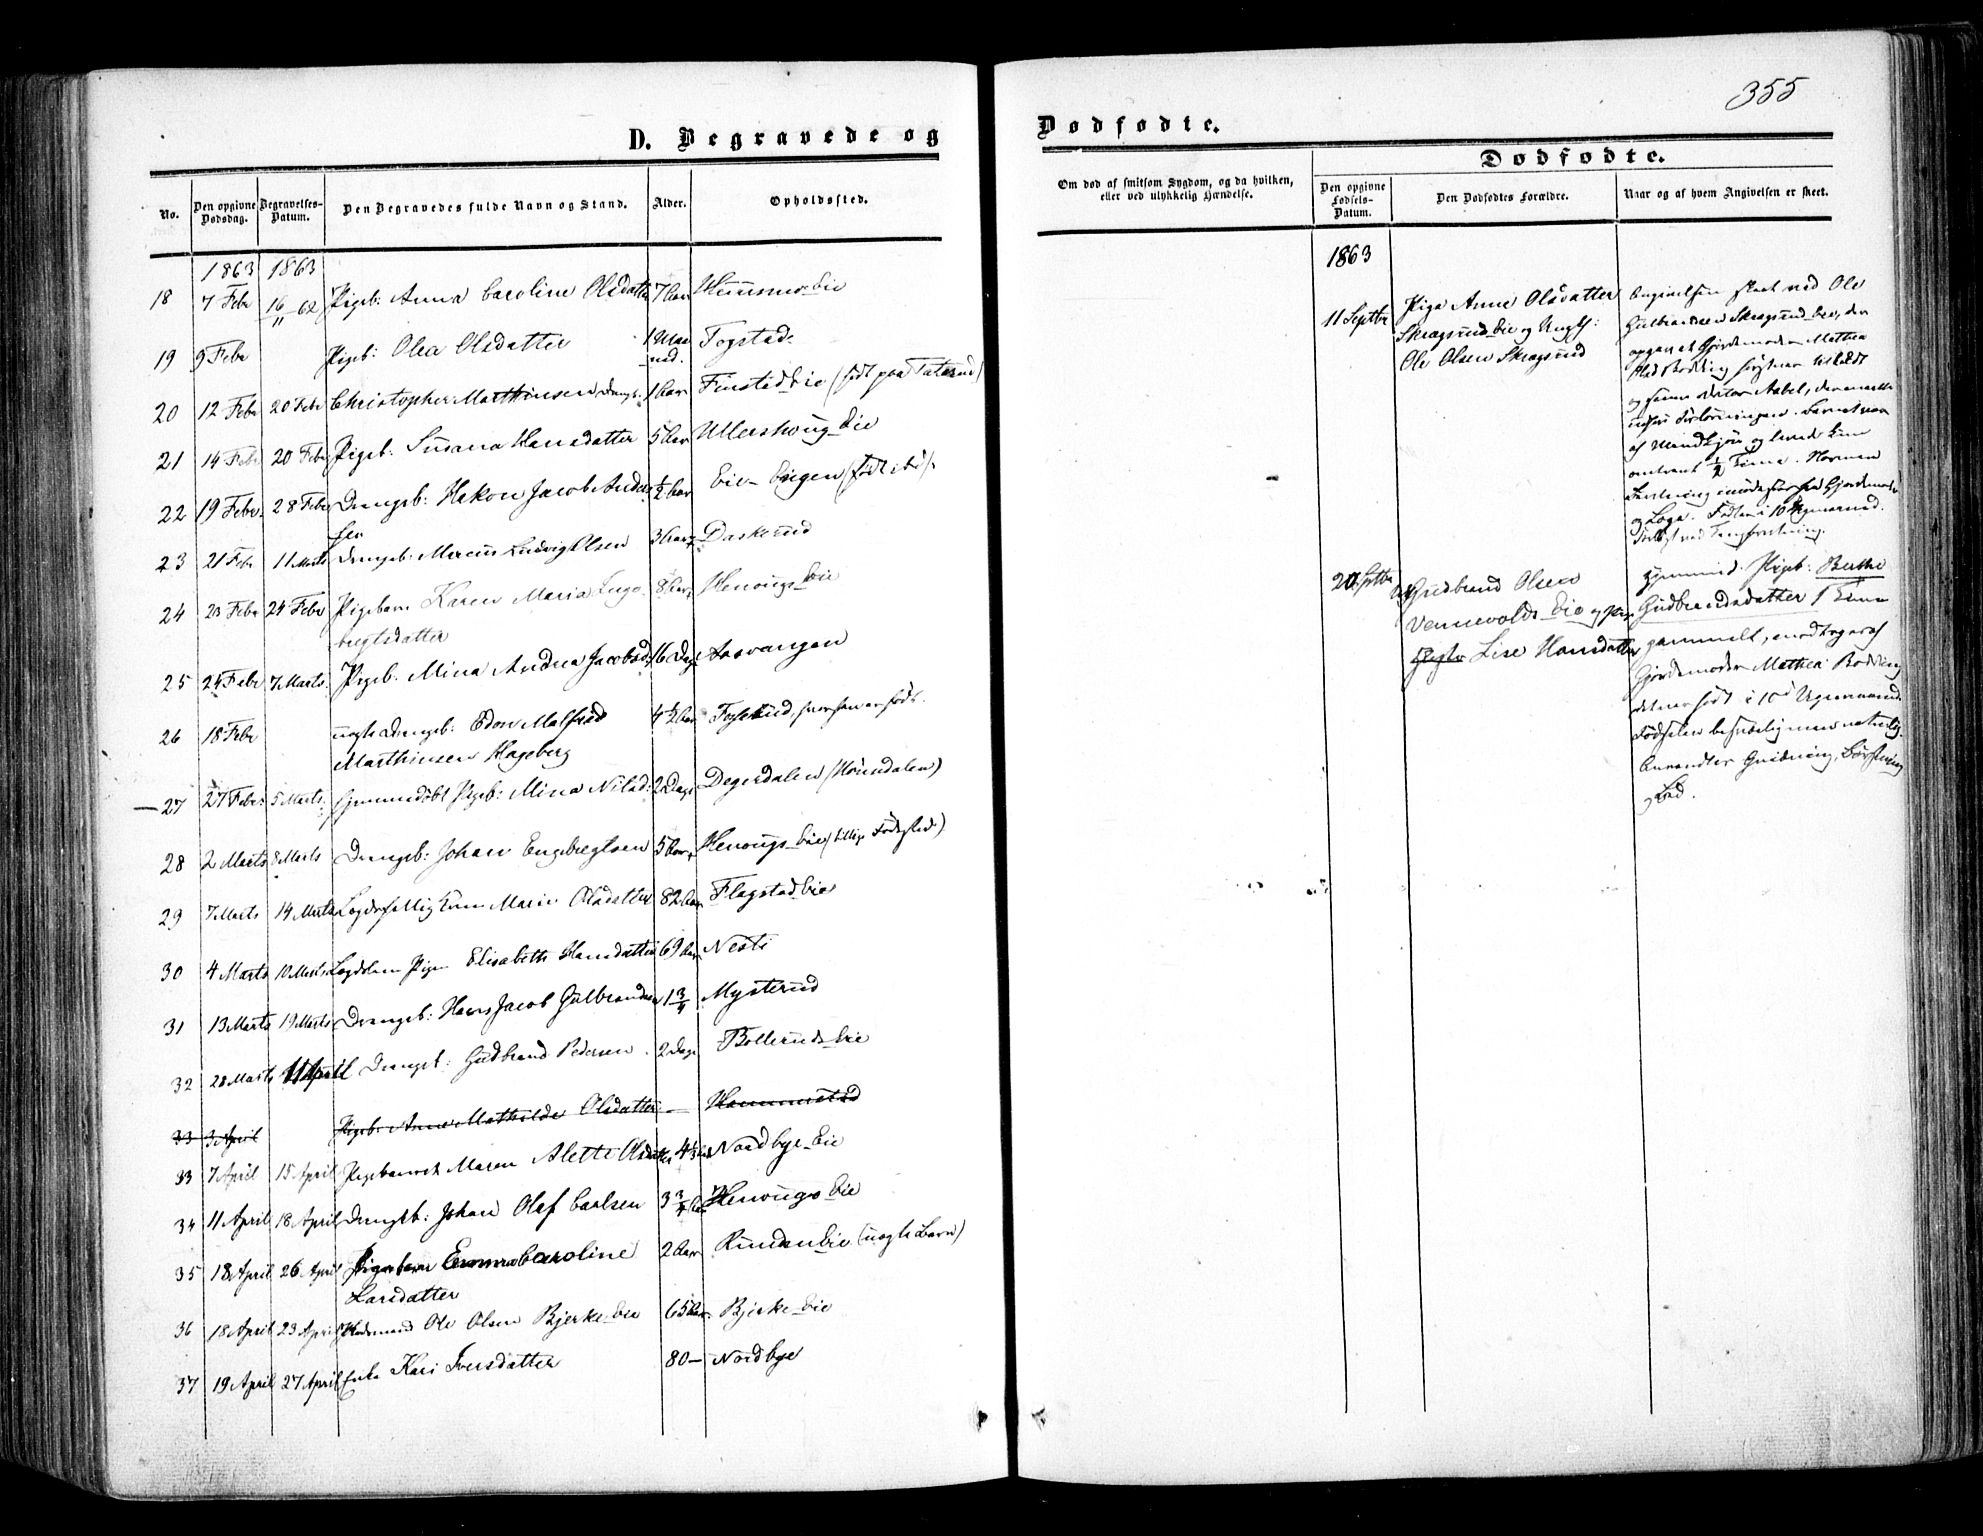 355
D. Begravede og
No. Den opgivne Dødsdag. Begravelses-Datum. Den Begravedes fulde Navn og Stand. Alder. Opholdssted.
1863 1863
18 7 Febr 16/11 62 Pigeb: Anna Caroline Olsdatter 7 Aar Eie
19 9 Febr Pigeb: Olea Olsdatter 1 Maaned. Fogstad
20 12 Febr 20 Febr Christopher Marthinsen Drengb. 1 Aar Finstadeie (født paa
21 14 Febr 20 Febr Pigeb: Susana Hansdatter 5 Aar Ullershoug Eie
22 19 Febr. 28 Febr Drengeb: Hakon Jacob Andersen 1/2 Aar Eie-Engen (født ibid:
23 21 Febr 11 Marts Drengeb: Marcus Ludvig Olsen 3 Aar Daskerud
24 23 Febr 24 Febr Pigebarn Karen Maria Inge-
bregtsdatter 8 Aar Henougs Eie
25 24 Febr 7 Marts. Pigeb. Mina Andrea Jacobsd: 16 Dage Aasvangen
26 18 Febr uægte Drengeb: Edon Malfred
Marthinsen Hagberg 4 1/2 Aar hvor han er født.
27 27 Febr: 5 Marts. hjemmedøbt Pigeb: Mina Nilsd: 2 Dage Degerdalen
28 2 Marts 8 Marts Drengeb: Johan Engebregtsen 5 Aar Henougs Eie (tillige Fødested)
29 7 Marts 14 Marts Marie Olsdatter 82 Aar Flagstadeie
30 4 Marts 10 Marts Pige Elisabeth Hansdatter 69 Aar Nesti
31 13 Marts 19 Marts Drengeb: Hans Jacob Gulbrandsen 1 3/4 Mysterud
32 28 Marts 11 April Drengeb: Gudbrand Pedersen. 2 Dage Bolleruds Eie
33 3 April Pigeb: Anne Mathilde Olsdatter — Hammerstad
33 7 April 15 April Pigebarnet Maren Alette Olsdatter 4 1/3 Aar Nordbye Eie
34 11 April 18 April Drengeb: Johan Olaf Carlsen 3 3/4 Aar Henougs Eie
35 18 April 26 April Pigebarn Emma Caroline
Larsdatter 2 Aar Rundeneie (uægte Barn)
36 18 April 23 April Husmand Ole Olsen Bjerke Eie 65 Aar. Bjerke Eie
37 19 April 27 April Enke Kari Iversdatter 80 — Nordbye
Dødfødte.
Om død af smitsom Sygdom, og da hvilken, eller ved ulykkelig Hændelse.
Dødfødte.
Den opgivne Fødsels-Datum. Den Dødfødtes Forældre. Naar og af hvem Angivelsen er skeet.
1863
11 Septbr
Pige Anne Olsdatter
Skragrud Eie og Ungk:
Ole Olsen Skragrud
Angivelsen skeet ved Ole
Gulbrandsen Skragrud Eie, der
opgav at Gjordemoder Mathea
Barnet var
af Mandkjøn og levede kun
omtrent 1/2 Time. Normen
20 Septbr
Gudbrand Olsen
Vennevolds Eie og
Lise Hansdatter
Pigeb: Berthe
Gudbrandsdatter 1 Time
gammelt, modtager af
Gjordemoder Mathea Bodding
det er født i 10de Ugemaaned.
Fødselen besværlig men naturlig.
Anvendtes Gnidning, Børstning
og Bad.